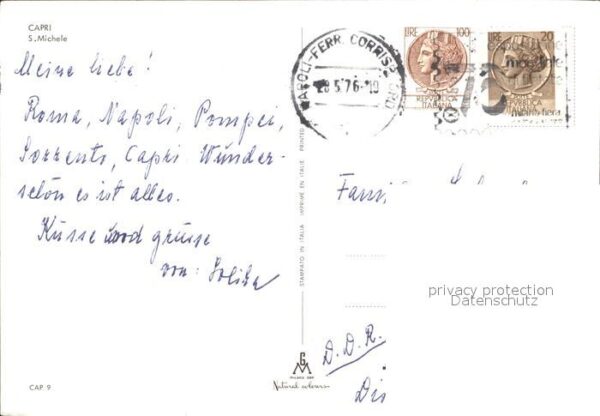 CAPRI
S. Michele
Meine liebe!
Roma, Napoli, Pompei,
Sorrento, Capri. Wunder-
schön es ist alles.
Küsse und grüsse
von:
CAP 9
STAMPATO IN ITALIA IMPRIMÉ EN ITALIE PRINTED
Natural colours
NAPOLI-FERR. CORRISP.
28.5.76-10
LIRE 100
ITALIANA
LIRE 20
Fami
privacy protection
Datenschutz
D.D.R.
Dis